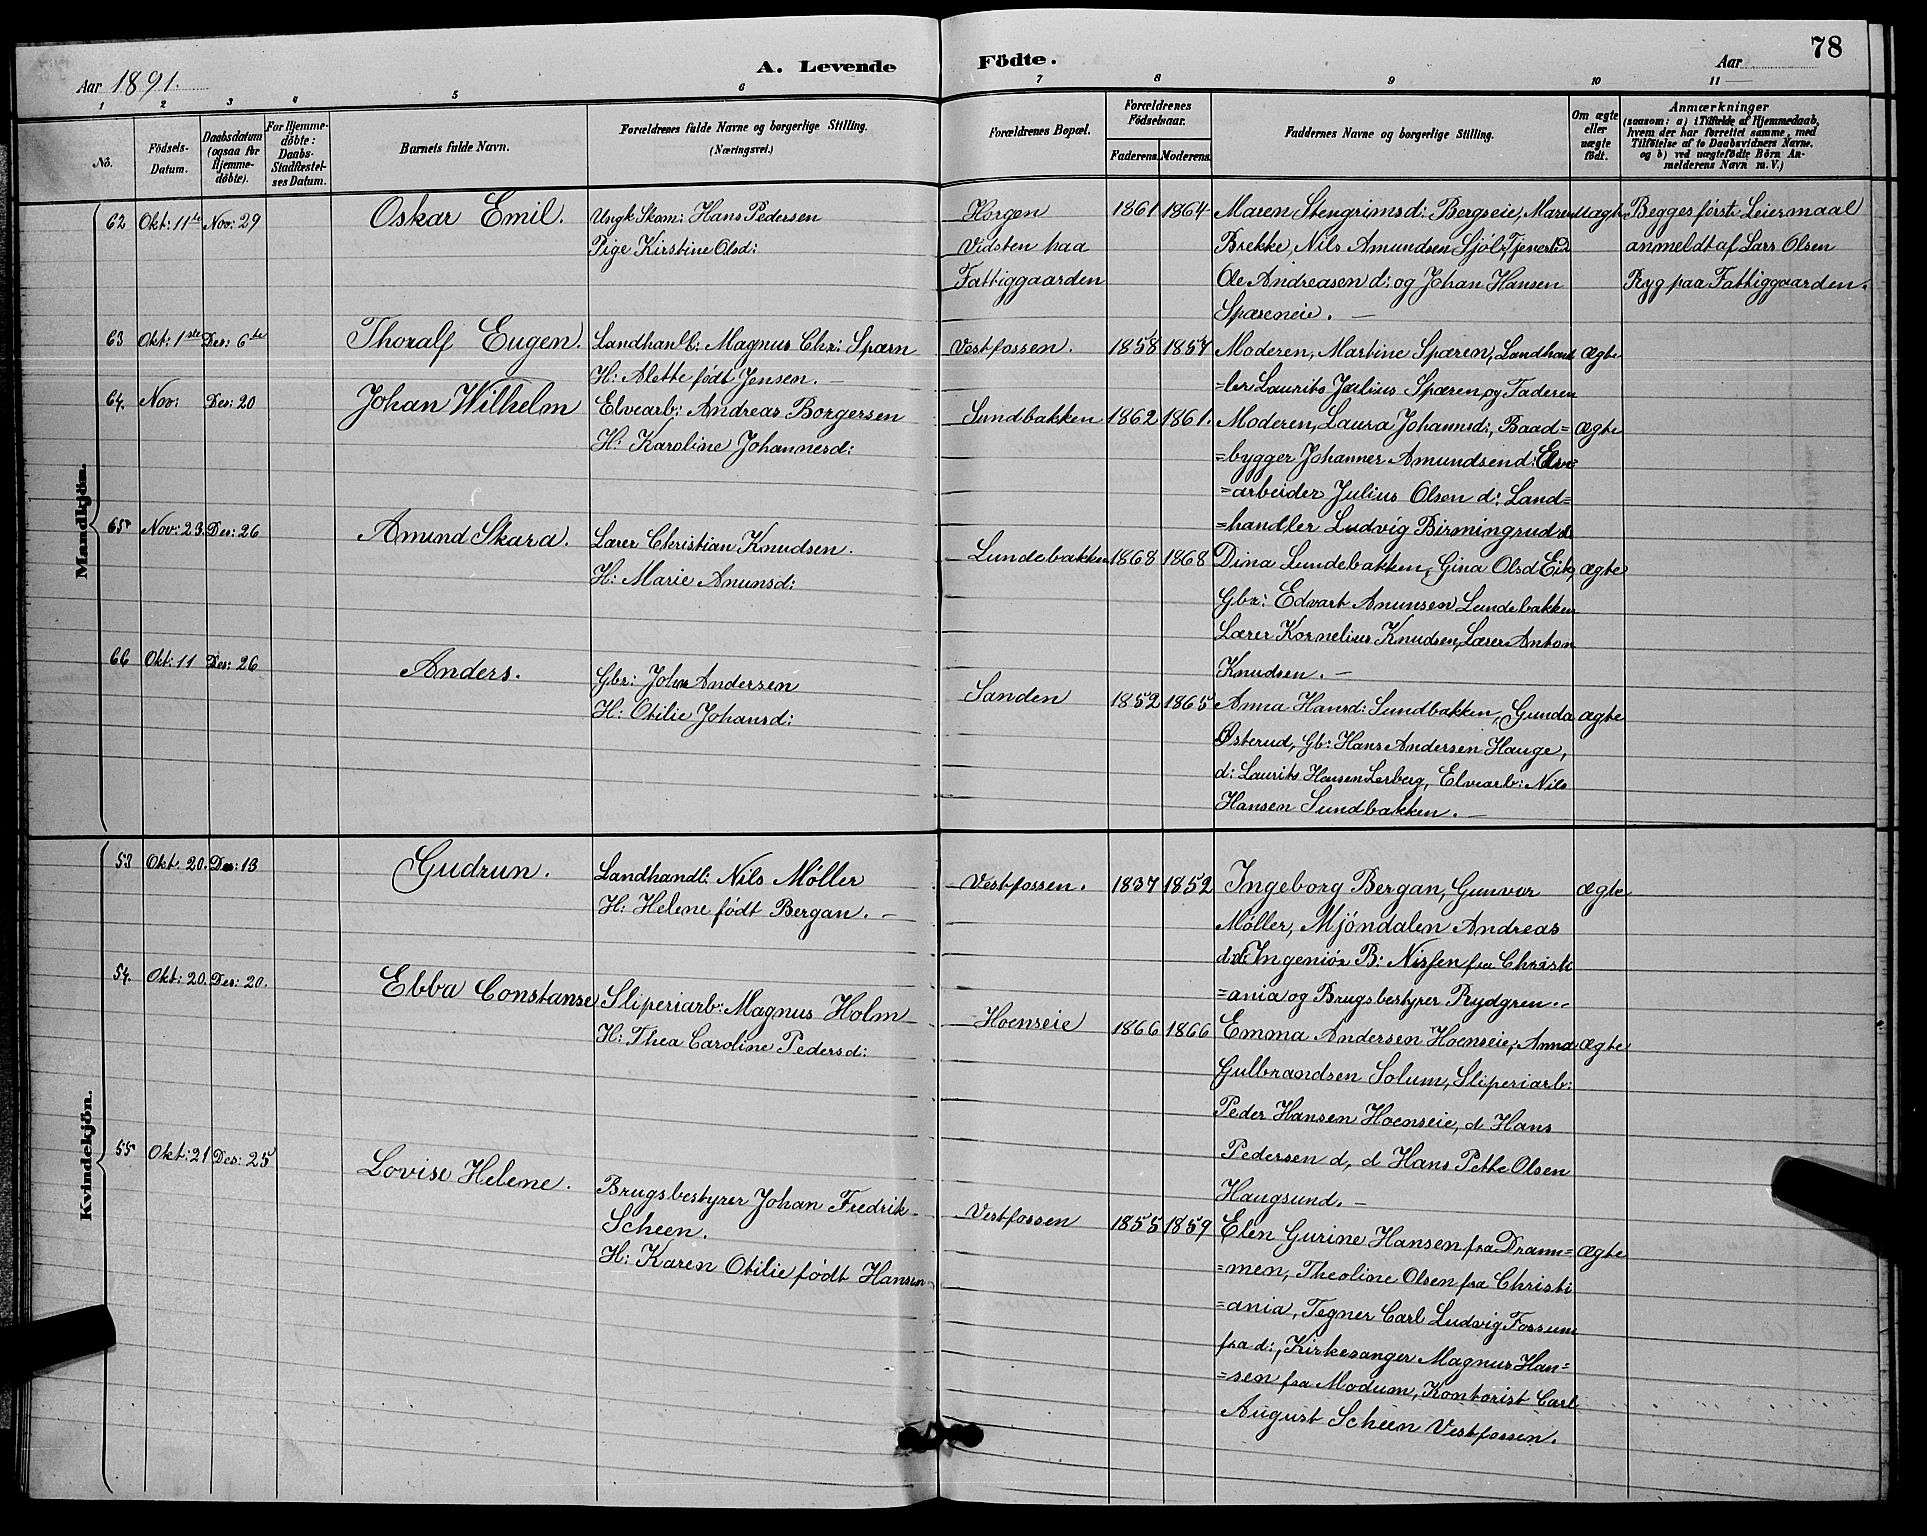 78
Aar 1891.
A. Levende Födte.
Aar
1 2 3 4 5 6 7 8 9 10 11
No.
Födsels-Datum.
Daabsdatum (ogsaa for Hjemme-döbte).
For Hjemme-döbte: Daabs-Stadfæstel-ses Datum.
Barnets fulde Navn.
Forældrenes fulde Navne og borgerlige Stilling.
(Næringsvei.)
Forældrenes Bopæl.
Forældrenes Födselsaar.
Faderens. Moderens.
Faddernes Navne og borgerlige Stilling.
Om ægte eller uægte födt.
Anmærkninger
(saasom: a) i Tilfælde af Hjemmedaab,
hvem der har forrettet samme, med
Tilföielse af to Daabsvidners Navne,
og b) ved uægtefödte Börn An-
melderens Navn m. V.)
Mandkjön.
62 Okt: 11te Nov: 29 Oskar Emil. Ungk. Skom: Hans Pedersen
Pige Kirstine Olsd:
Horgen
Vidsten paa
Fattiggaarden
1861 1864
Maren Stengrimsd: Bergseie, Maren
Brekke, Nils Amundsen Sjøl, Tjener
Ole Andreasen d: og Johan Hansen
Spæreneie. —
uægte
Begges förste Leiermaal
anmeldt af Lars Olsen
Ryg paa Fattiggaarden.
63 Okt: 1ste Des: 6te Thoralf Eugen. Landhandl: Magnus Chr: Spærn
H: Alette født Jensen. —
Vestfossen. 1858 1857
Moderen, Martine Spæren, Landhand
=ler Laurits Julius Spæren, og Faderen
ægte
64. Nov: Des: 20 Johan Wilhelm Elvearb: Andreas Borgersen
H: Karoline Johannesd:
Sundbakken 1862 1861.
Moderen, Laura Johannsd:, Baad=
=bygger Johannes Amundsen d: Elve=
=arbeider Julius Olsen d: Land=
=handler Ludvig Birmingrud d:
ægte
65 Nov: 23. Des: 26 Amund Skara. Lærer Christian Knudsen.
H: Marie Anunsd:
Lundebakken 1868 1868
Dina Lundebakken, Gina Olsd Eik,
Gbr: Edvart Anunsen Lundebakken
Lærer Kornelius Knudsen, Lærer Anton
Knudsen. —
ægte
66 Okt: 11 Des: 26 Anders. Gbr: Johan Andersen
H: Otilie Johansd:
Sanden 1852 1865
Anna Hansd: Sundbakken, Gunda
Østerud, Gb: Hans Andersen Hauge,
d: Laurits Hansen Lerberg, Elvearb: Nils
Hansen Sundbakken. —
ægte
Kvindekjön.
53 Okt. 20. Des: 13 Gudrun. Landhandl: Nils Møller
H: Helene født Bergan. —
Vestfossen. 1837 1852
Ingeborg Bergan, Gunvor
Møller, Mjöndalen Andreas
d: d: Ingeniør B: Nissen fra Christi
=ania og Brugsbestyrer Rydgren. —
ægte
54. Okt: 20. Des: 20. Ebba Constanse Sliperiarb: Magnus Holm
H: Thea Caroline Pedersd:
Hoenseie 1866 1866
Emma Andersen Hoenseie, Anna
Gulbrandsen Solum, Sliperiarb:
Peder Hansen Hoenseie, d Hans
Pedersen d, d Hans Pette Olsen
Haugsund. —
ægte
55 Okt: 21 Des: 25 Lovise Helene. Brugsbestyrer Johan Fredrik
Scheen.
H: Karen Otilie født Hansen
Vestfossen 1855 1859
Elen Gurine Hansen fra Dram=
=men, Theoline Olsen fra Christi
=ania, Tegner Carl Ludvig Fossum
fra d:, Kirkesanger Magnus Han=
=sen fra Modum, Kontorist Carl
August Scheen Vestfossen.
ægte